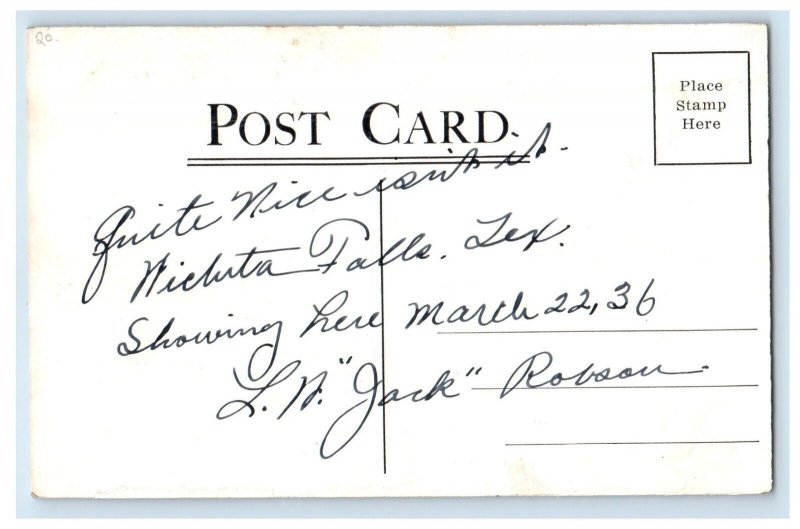 20-
POST CARD
Place
Stamp
Here
Quite Nice isn't it.
Wichita Falls. Tex.
Showing here March 22, 36
L. W. "Jack" Robson